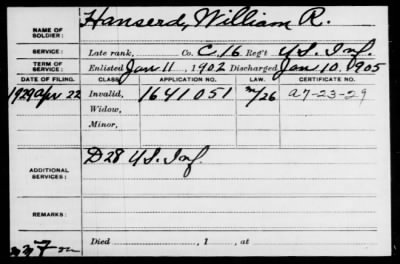 NAME OF SOLDIER: Hanserd, William R.
SERVICE: Late rank, Co. C, 16 Reg't U.S. Inf.
TERM OF SERVICE: Enlisted Jan 11, 1902 Discharged Jan 10, 1905
DATE OF FILING. CLASS. APPLICATION NO. LAW. CERTIFICATE NO.
1929 Apr 22 Invalid, 1641051 m/26 A7-23-29
Widow,
Minor,
ADDITIONAL SERVICES: D 28 U.S. Inf.
REMARKS:
Died , 1 , at